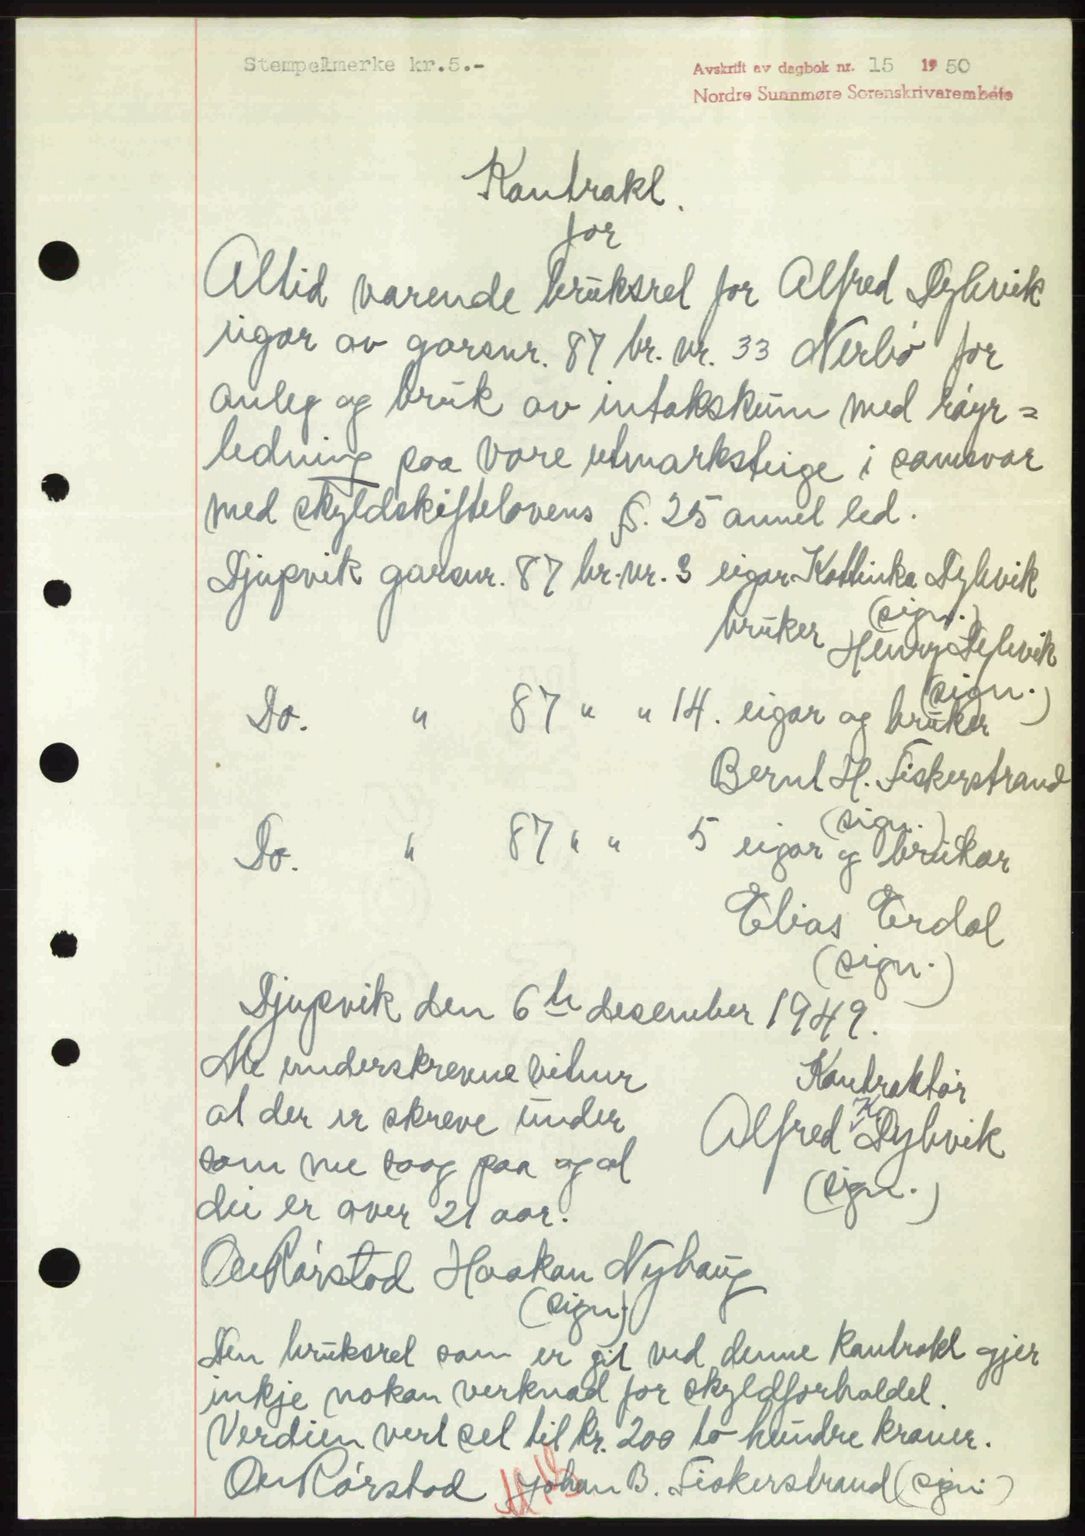 Stempelmerke kr.5.-
Avskrift av dagbok nr. 15 1950
Nordre Sunnmøre Sorenskrivarembete
Kontrakt.
for
Altid varende bruksret for Alfred Dybvik
eigar av garsnr. 87 br. nr. 33 Nerbø for
anleg og bruk av intakskum med røyr=
ledning paa vore utmarksteige i samsvar
med skyldskiftelovens §. 25 annet led.
Djupvik garsnr. 87 br. nr. 3 eigar Kathinka Dybvik
(sign.)
bruker Henry Dybvik
(sign.)
Do. " 87 " " 14. eigar og bruker
Bernt H. Fiskerstrand
(sign.)
Do. " 87 " " 5 eigar og brukar
Elias Erdal
(sign.)
Djupvik den 6te desember 1949.
Me underskrevne vitnur
at der er skreve under
som me saag paa og at
dei er over 21 aar.
Kontraktør
Alfred K Dybvik
(sign.)
Ole Rørstad Haakon Nybaug
(sign)
Den bruksret som er git ved denne kontrakt gjer
inkje nokon verknad for skyldforholdet.
Verdien vert set til kr. 200 to hundre kroner.
Ole Rørstad Johan B. Fiskerstrand (sign.)